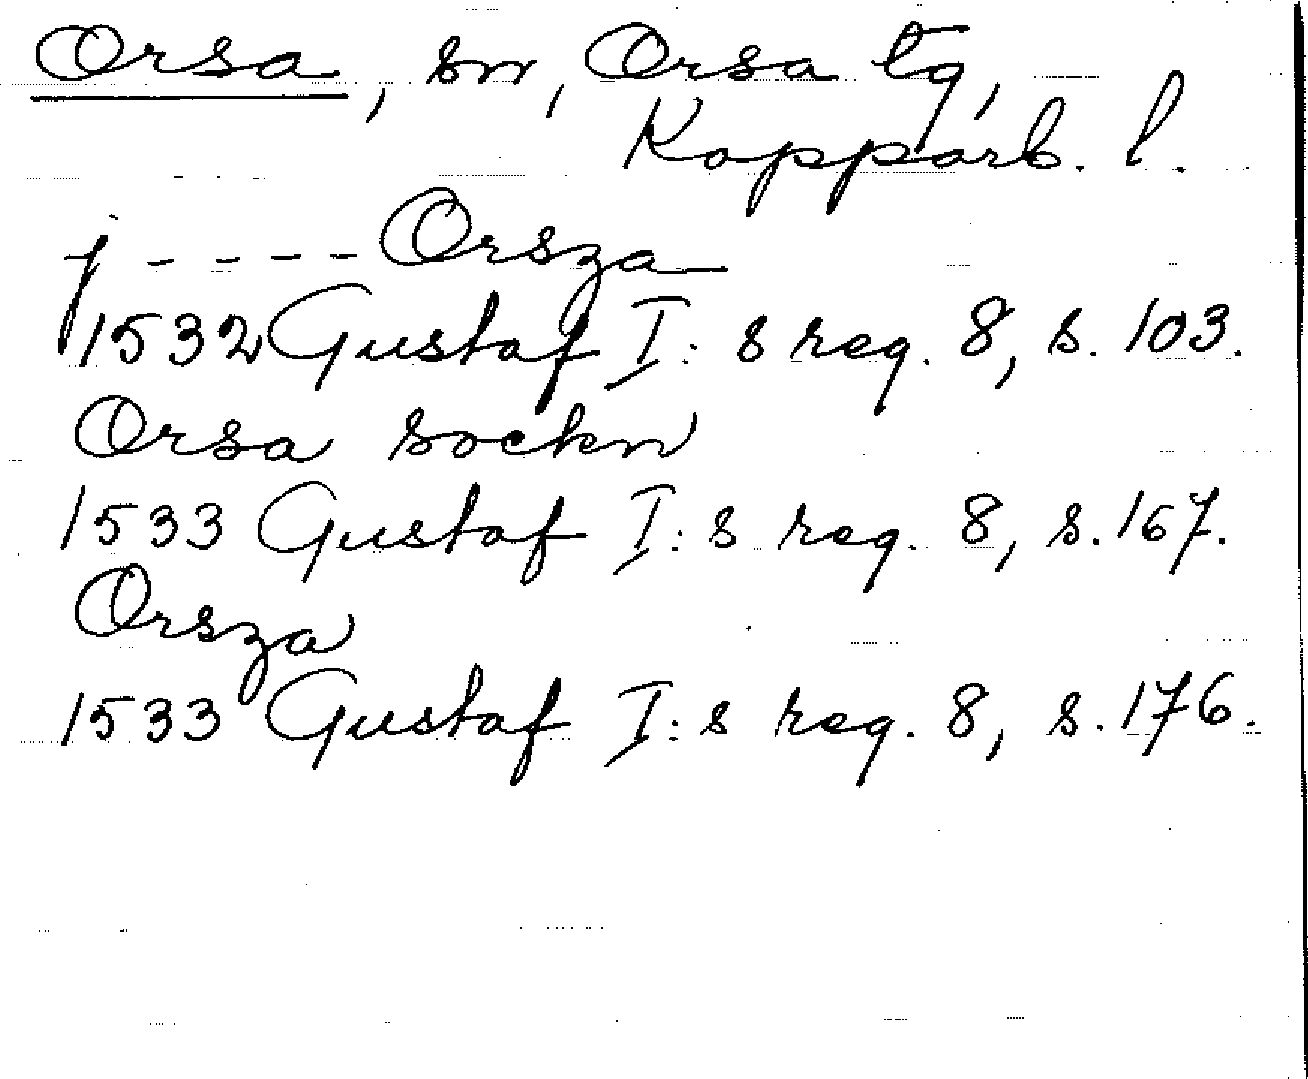 Orsa, sn, Orsa tg,
Kopparb. l.
j - - - - Orsza
1532 Gustaf I:s reg. 8, s. 103.
Orsa sockn
1533 Gustaf I:s reg. 8, s. 167.
Orsza
1533 Gustaf I:s reg. 8, s. 176.